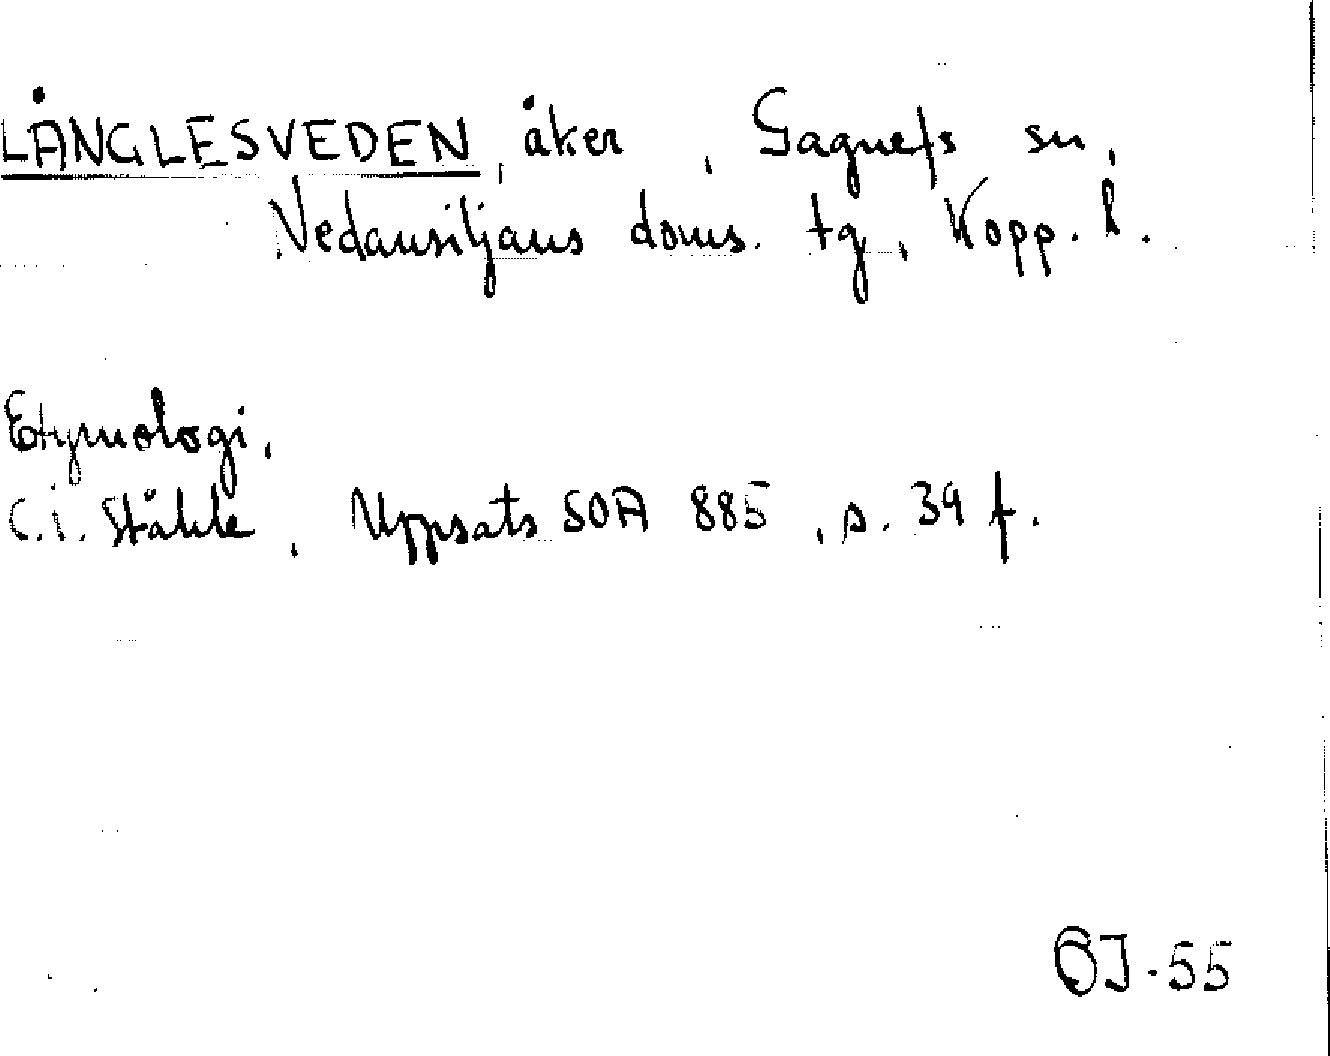 LÅNGLESVEDEN, åker, Gagnefs sn,
Nedansiljans doms. tg, Kopp. l.
Etymologi.
C.I. Ståhle, Uppsats SOA 885, s. 39 f.
ÖJ-55